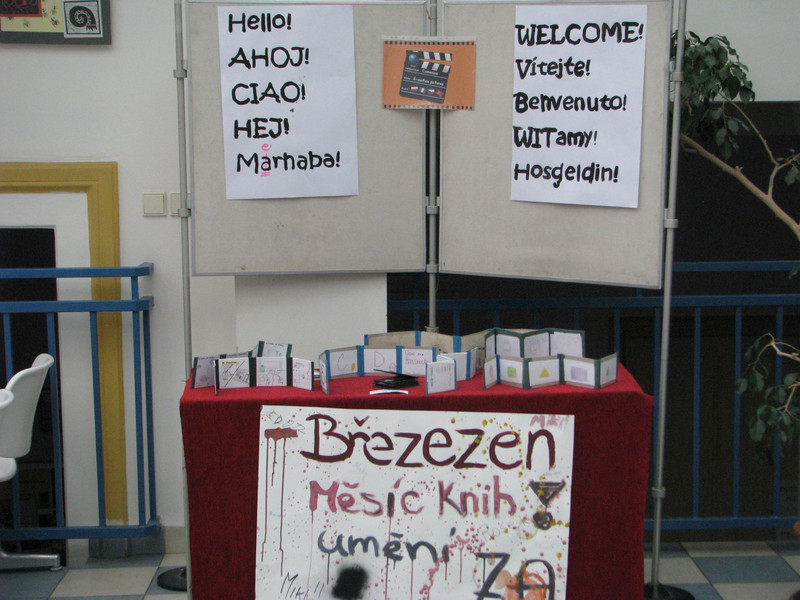 Hello!
AHOJ!
CIAO!
HEJ!
Marhaba!
e
WELCOME!
Vítejte!
Benvenuto!
WITamy!
Hosgeldin!
Březezen
Měsíc Knih !
umění
ZA